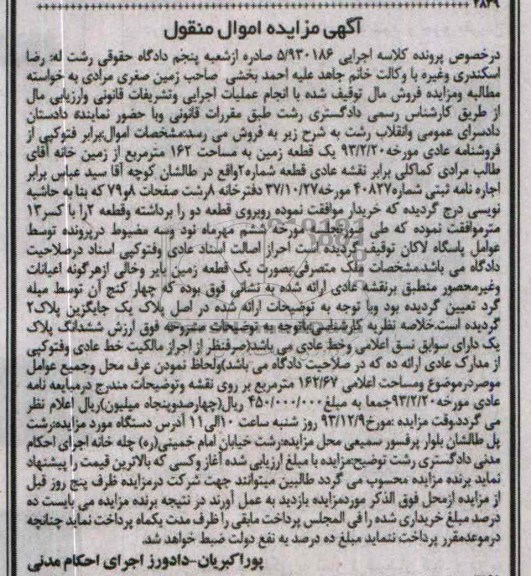 ۲۸۴۹
آگهی مزایده اموال منقول
درخصوص پرونده کلاسه اجرایی ۵/۹۳۰۱۸۶ صادره ازشعبه پنجم دادگاه حقوقی رشت له: رضا
اسکندری وغیره با وکالت خانم جاهد علیه احمد بخشی صاحب زمین صغری مرادی به خواسته
مطالبه ومزایده فروش مال توقیف شده با انجام عملیات اجرایی وتشریفات قانونی وارزیابی مال
از طریق کارشناس رسمی دادگستری رشت طبق مقررات قانونی وبا حضور نماینده دادستان
دادسرای عمومی وانقلاب رشت به شرح زیر به فروش می رسد:مشخصات اموال:برابر فتوکپی از
فروشنامه عادی مورخه۹۳/۲/۲۰ یک قطعه زمین به مساحت ۱۶۲ مترمربع از زمین خانه آقای
طالب مرادی کماکلی برابر نقشه عادی قطعه شماره۲واقع در طالشان کوچه آقا سید عباس برابر
اجاره نامه ثبتی شماره۴۰۸۲۷ مورخه۳۷/۱۰/۲۷ دفترخانه ۸رشت صفحات ۸و۷۹ که بنا به حاشیه
نویسی درج گردیده که خریدار موافقت نموده روبروی قطعه دو را برداشته وقطعه ۲را با کسر۱۳
مترموافقت نموده که طی صورتجلسه مورخه ششم مهرماه نود وسه مضبوط درپرونده توسط
عوامل پاسگاه لاکان توقیف گردیده است احراز اصالت اسناد عادی وفتوکپی اسناد درصلاحیت
دادگاه می باشد.مشخصات ملک متصرفی:بصورت یک قطعه زمین بایر وخالی ازهرگونه اعیانات
وغیرمحصور منطبق برنقشه عادی ارائه شده به نشانی فوق بوده که چهار کنج آن توسط میله
گرد تعیین گردیده بود وبا توجه به توضیحات ارائه شده در اصل پلاک یک جایگزین پلاک۲
گردیده است.خلاصه نظریه کارشناس:باتوجه به توضیحات مشروحه فوق ارزش ششدانگ پلاک
یک دارای سوابق نسق اعلامی وخط عادی می باشد(صرفنظر از احراز مالکیت خط عادی وفتوکپی
از مدارک عادی ارائه ده که در صلاحیت دادگاه می باشد)ولحاظ نمودن عرف محل وجمیع عوامل
موصردرموضوع ومساحت اعلامی ۱۶۲/۶۷ مترمربع بر روی نقشه وتوضیحات مندرج درمبایعه نامه
عادی مورخه۹۳/۲/۲۰جمعا به مبلغ ۴۵۰/۰۰۰/۰۰۰ ریال(چهارصدوپنجاه میلیون)ریال اعلام نظر
می گردد.وقت مزایده :مورخ۹۳/۱۲/۹ روز شنبه ساعت ۱۰الی۱۱ آدرس دستگاه مورد مزایده:رشت
پل طالشان بلوار پرفسور سمیعی محل مزایده:رشت خیابان امام خمینی(ره) چله خانه اجرای احکام
مدنی دادگستری رشت توضیح:مزایده با مبلغ ارزیابی شده آغاز وکسی که بالاترین قیمت را پیشنهاد
نماید برنده مزایده محسوب می گردد طالبین میتوانند جهت شرکت درمزایده ظرف پنج روز قبل
از مزایده ازمحل فوق الذکر موردمزایده بازدید به عمل آورند در نتیجه برنده مزایده می بایست ده
درصد مبلغ خریداری شده را فی المجلس پرداخت مابقی را ظرف مدت یکماه پرداخت نماید چنانچه
درموعدمقرر پرداخت ننماید مبلغ ده درصد به نفع دولت ضبط خواهد شد.
پوراکبریان-دادورز اجرای احکام مدنی